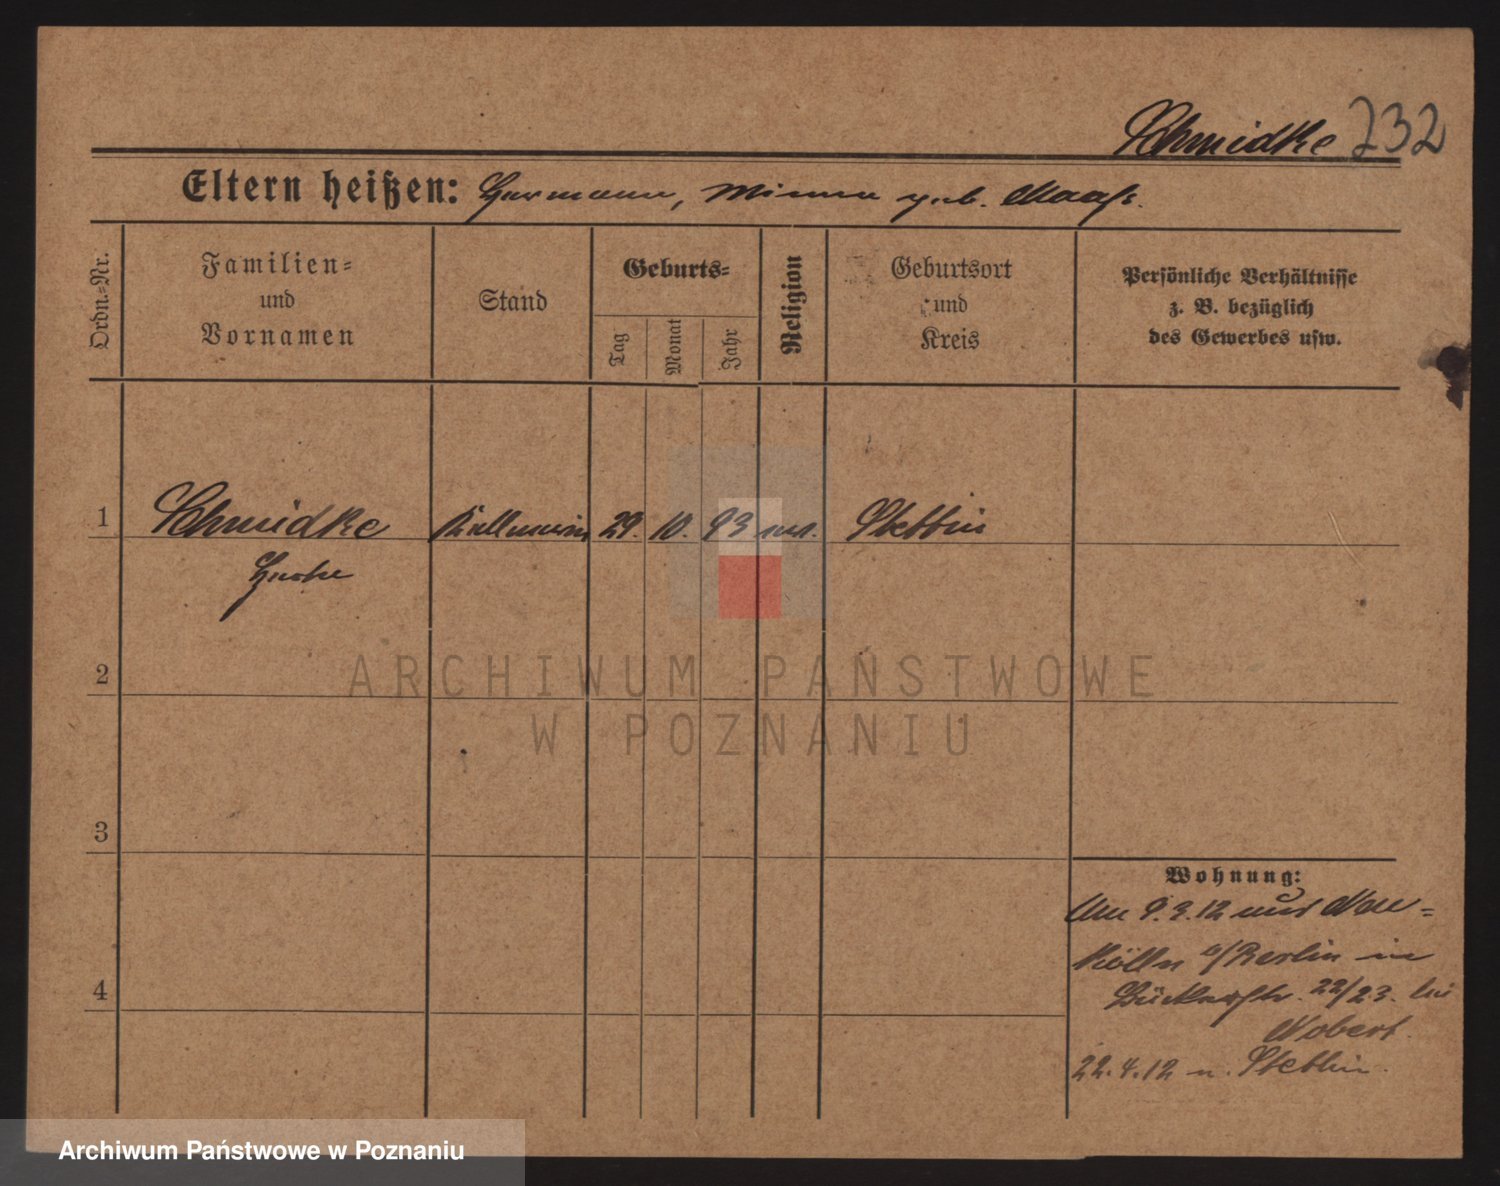 Schmidke 732
Eltern heißen: Hermann, Minna geb. Maaß.
Ordn.-Nr.
Familien-
und
Vornamen
Stand
Geburts-
Tag
Monat
Jahr
Religion
Geburtsort
und
Kreis
Persönliche Verhältnisse
z. B. bezüglich
des Gewerbes usw.
1 Schmidke Kellnerin 29. 10. 93 ev. Stettin
2
3
4
Wohnung:
Am 9.3.12 aus Neu=
kölln b/Berlin in
22/23. bei
Nobert.
22.4.12 n. Stettin.
ARCHIWUM PAŃSTWOWE
W POZNANIU
Archiwum Państwowe w Poznaniu